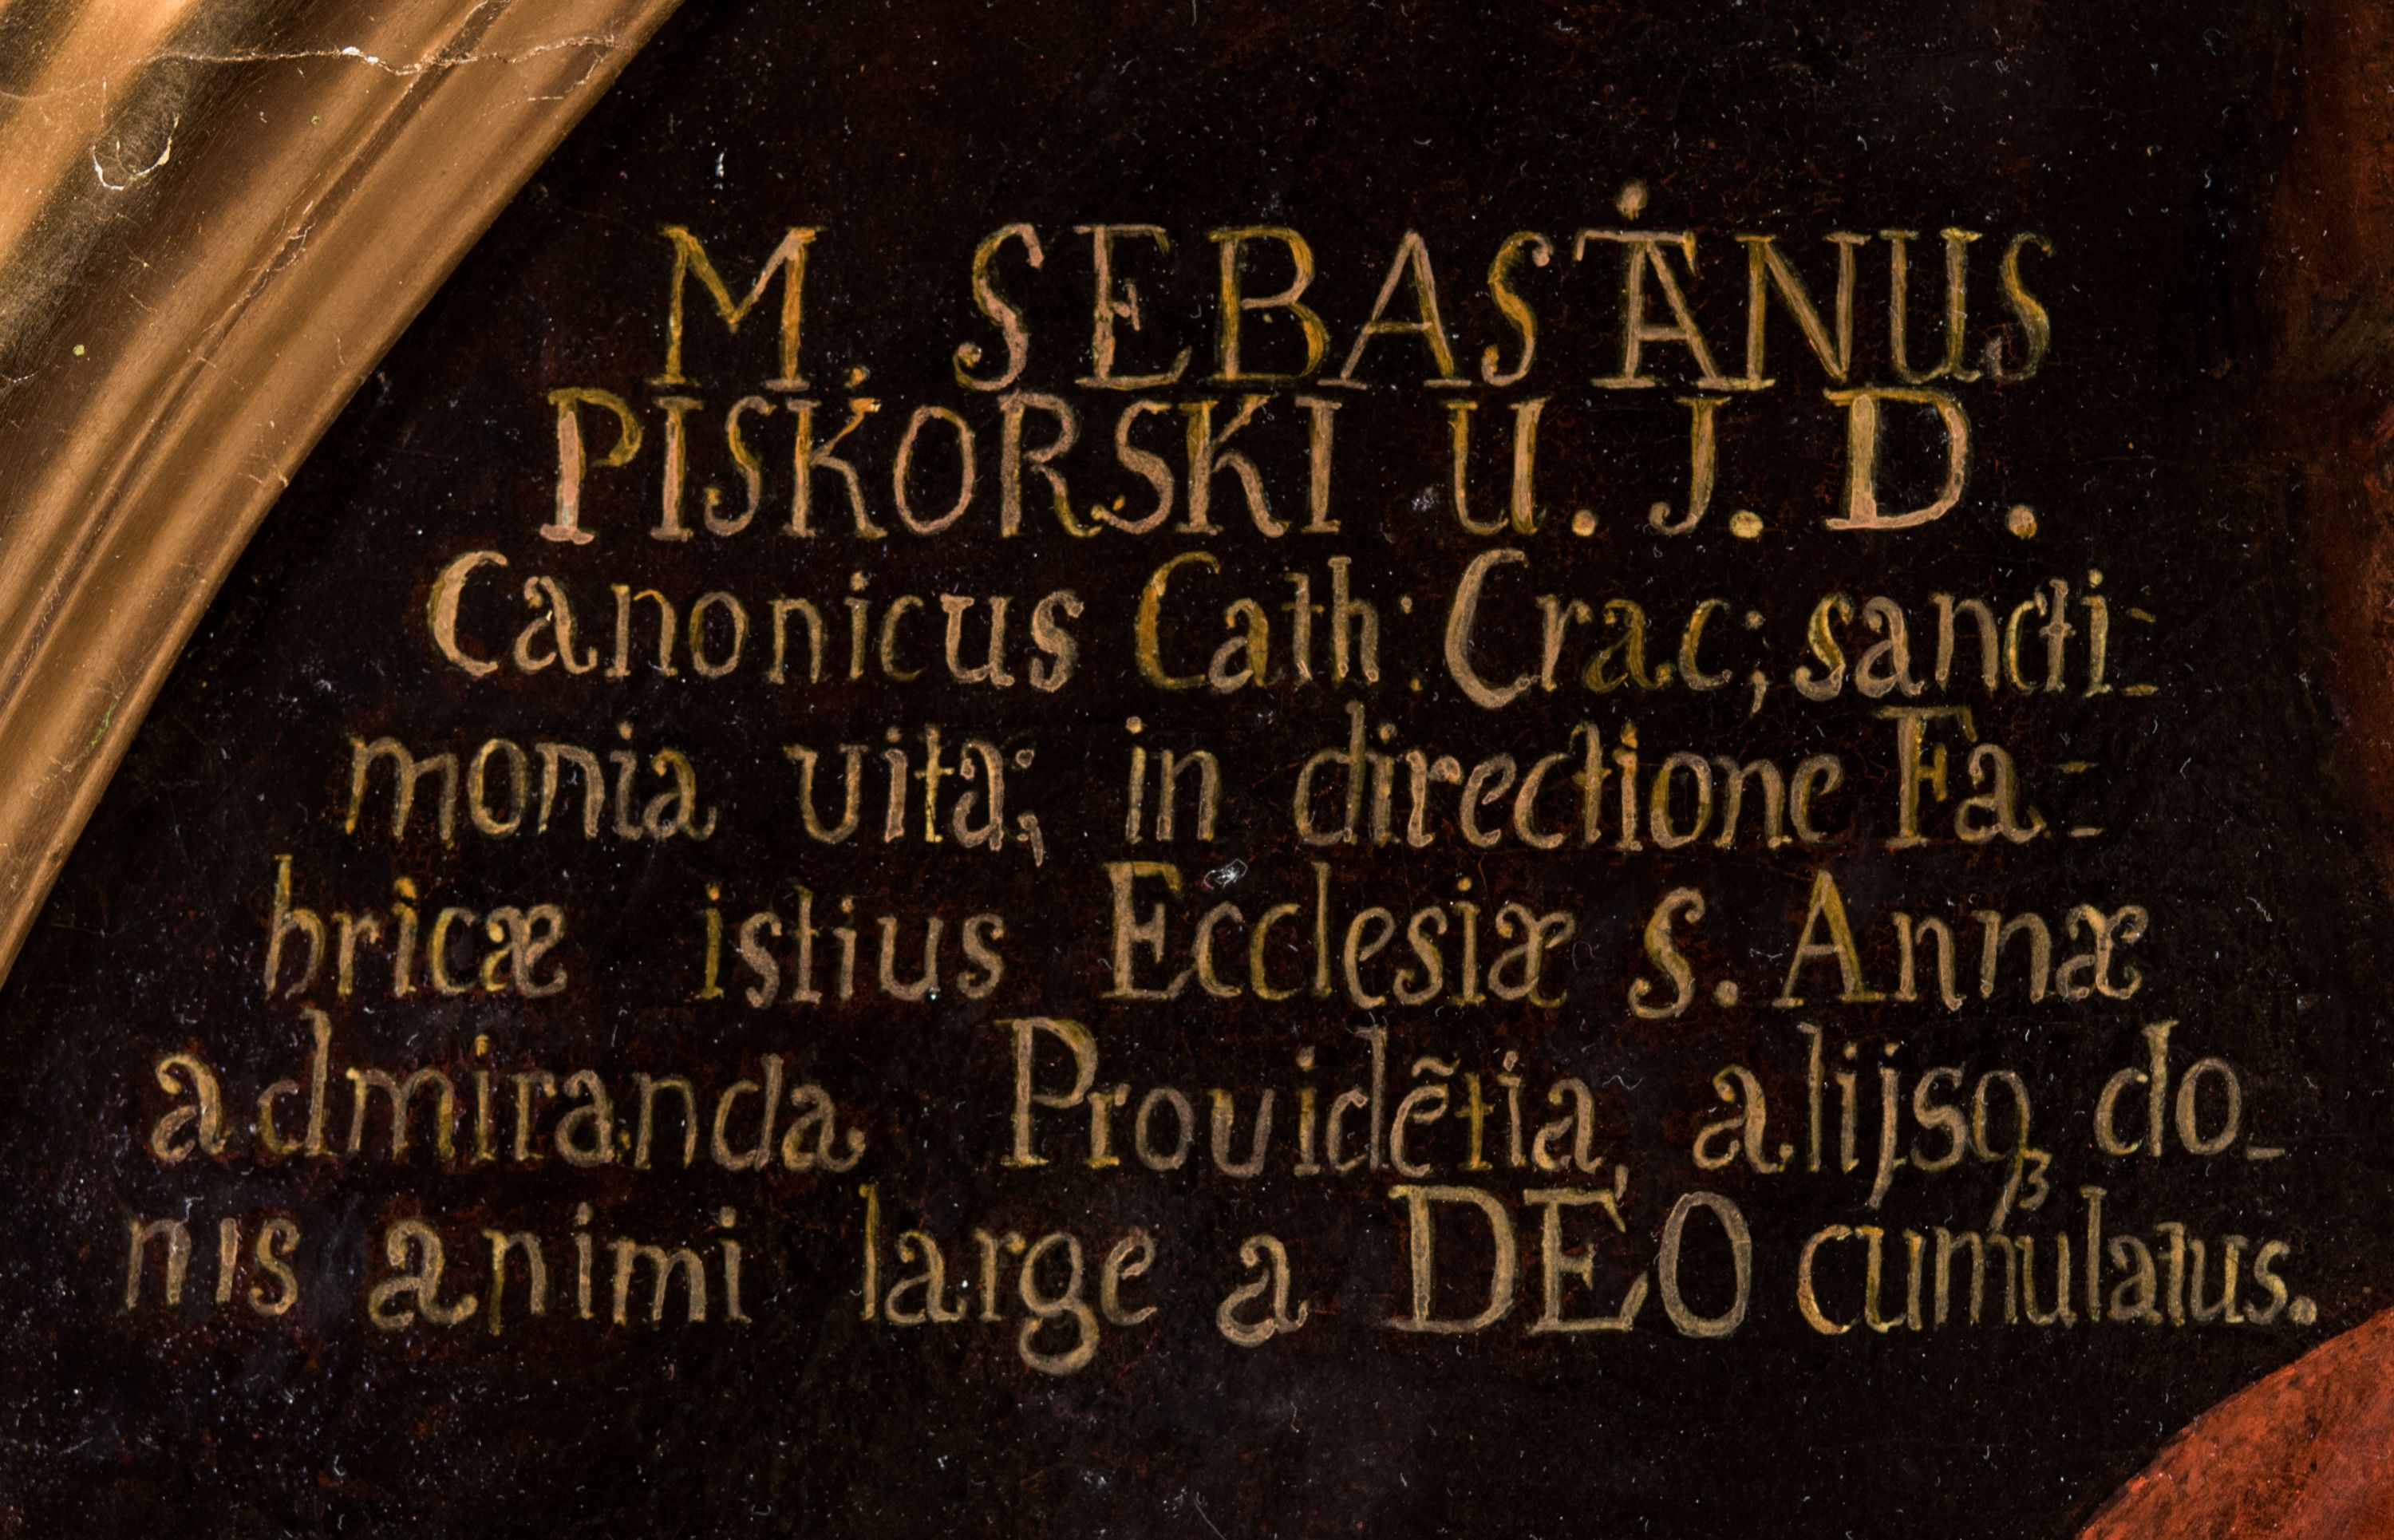 M. SEBASTIANUS
PISKORSKI U. J. D.
Canonicus Cath: Crac; sancti=
monia uita; in directione Fa=
bricæ istius Ecclesiæ S. Annæ
admiranda Prouidẽtia, alijsqꝫ do-
nis animi large a DEO cumulatus.